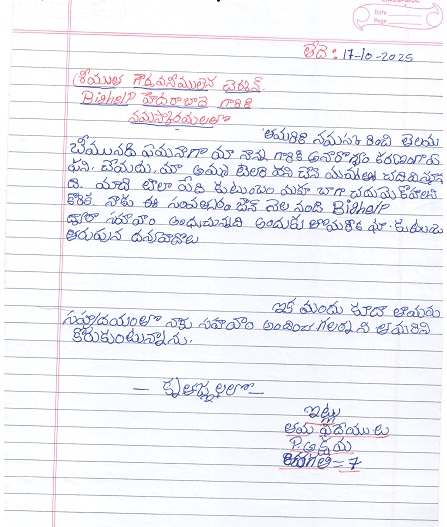 Date
Page
తేది: 17-10-2025
శ్రీయుత గౌరవనీయులైన చైర్మన్.
BigHelP హైదరాబాద్ గారికి
నమస్కారములతో
తమరికి నమస్కరించి తెలియ
చేయునది ఏమనగా మా నాన్న గారికి అనారోగ్యం కారణంగా
పని. చేయడు. మా అమ్మ టైలరి పని చేసి మమ్మల్ని చదివిస్తున్న
ది. మాది చాలా పేద కుటుంబం మేము బాగా చదుముకోవాలని
కోరిక నాకు ఈ సంవత్సరం జూన్ నెల నుండి BigHelP
ద్వారా సహాయం అందుచున్నది అందుకు తమరికి మా. కుటుంబం
తరుపున ధన్యవాదాలు
ఇక ముందు కూడా తమరు
సహృదయంతో నాకు సహాయం అందించ గలరని తమరిని
కోరుకుంటున్నాను.
— కృతజ్ఞతలతో —
ఇట్లు
తమ విధేయులు
P.అక్షయ
తరగతి = 7